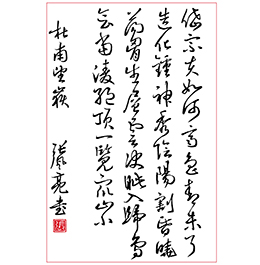 岱宗夫如何齊魯青未了
造化鍾神秀陰陽割昏曉
蕩胸生層雲決眥入歸鳥
會當凌絶頂一覽衆山小
杜甫望嶽 張亮書